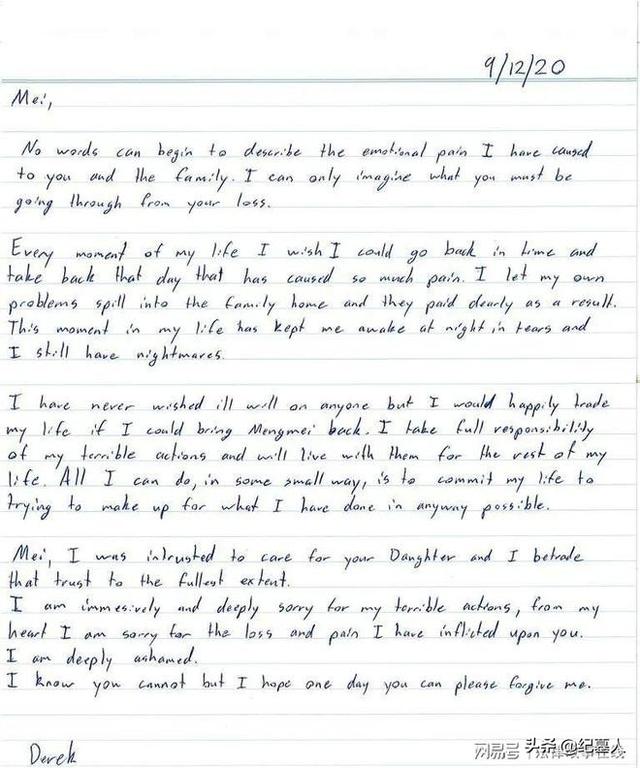 9/12/20
Mei,
No words can begin to describe the emotional pain I have caused
to you and the family. I can only imagine what you must be
going through from your loss.
Every moment of my life I wish I could go back in time and
take back that day that has caused so much pain. I let my own
problems spill into the family home and they paid dearly as a result.
This moment in my life has kept me awake at night in tears and
I still have nightmares.
I have never wished ill will on anyone but I would happily trade
my life if I could bring Mengmei back. I take full responsibility
of my terrible actions and will live with them for the rest of my
life. All I can do, in some small way, is to commit my life to
trying to make up for what I have done in anyway possible.
Mei, I was intrusted to care for your Daughter and I betrade
that trust to the fullest extent.
I am immesively and deeply sorry for my terrible actions, from my
heart I am sorry for the loss and pain I have inflicted upon you.
I am deeply ashamed.
I know you cannot but I hope one day you can please forgive me.
Derek
头条 @纪墓人
网易号